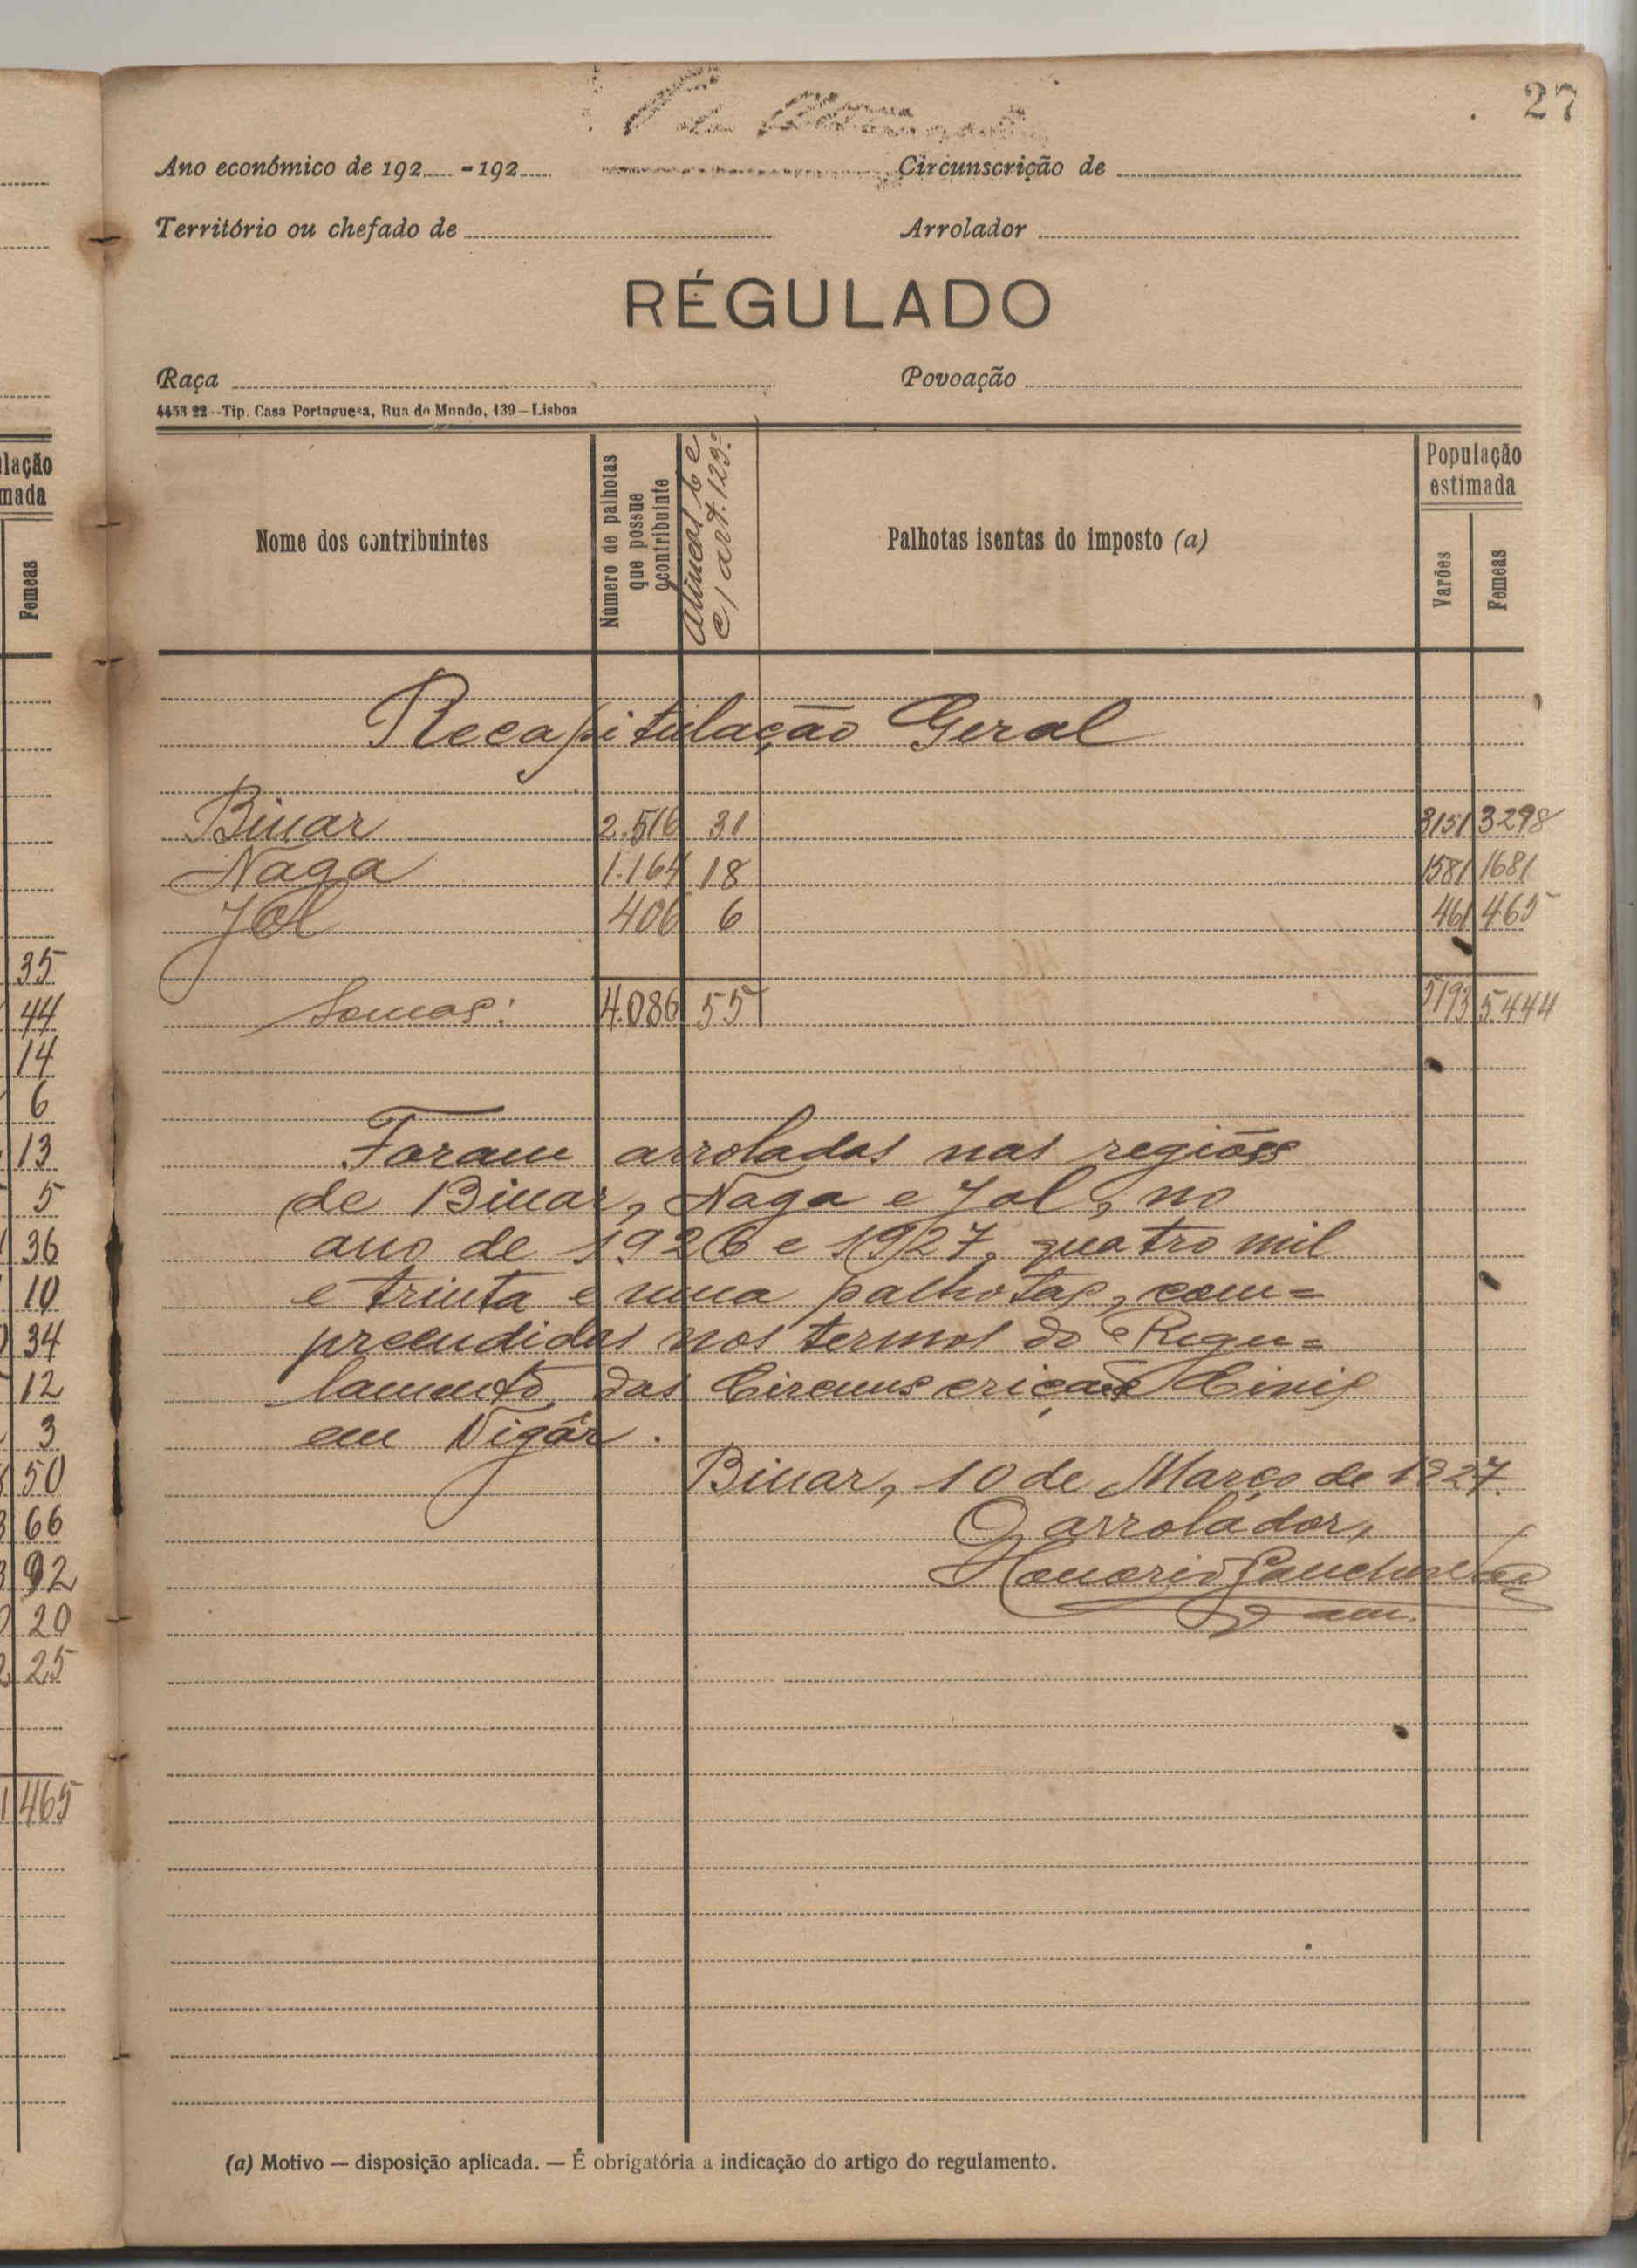 27
Ano económico de 192 -192 Circunscrição de
Território ou chefado de Arrolador
RÉGULADO
Raça Povoação
4453 22--Tip. Casa Portuguesa, Rua do Mundo, 139 – Lisboa
Nome dos contribuintes
Número de palhotas
que possue
o contribuinte
alineas b e
c, art. 123.º
Palhotas isentas do imposto (a)
População
estimada
Varões
Femeas
Recapitulação Geral
Binar 2.516 31 3151 3298
Naga 1.164 18 1581 1681
Jol 406 6 461 465
Somas: 4.086 55 5193 5.444
Foram arroladas nas regiões
de Binar, Naga e Jol, no
ano de 1926 e 1927, quatro mil
e trinta e uma palhotas, com=
preendidas nos termos do Regu=
lamento das Circunscrições Civis
em Vigôr.
Binar, 10 de Março de 1927.
O arrolador,
Honorio Sanches
(a) Motivo — disposição aplicada. — É obrigatória a indicação do artigo do regulamento.
lação
mada
Femeas
35
44
14
6
13
5
36
10
34
12
3
50
66
92
20
25
465